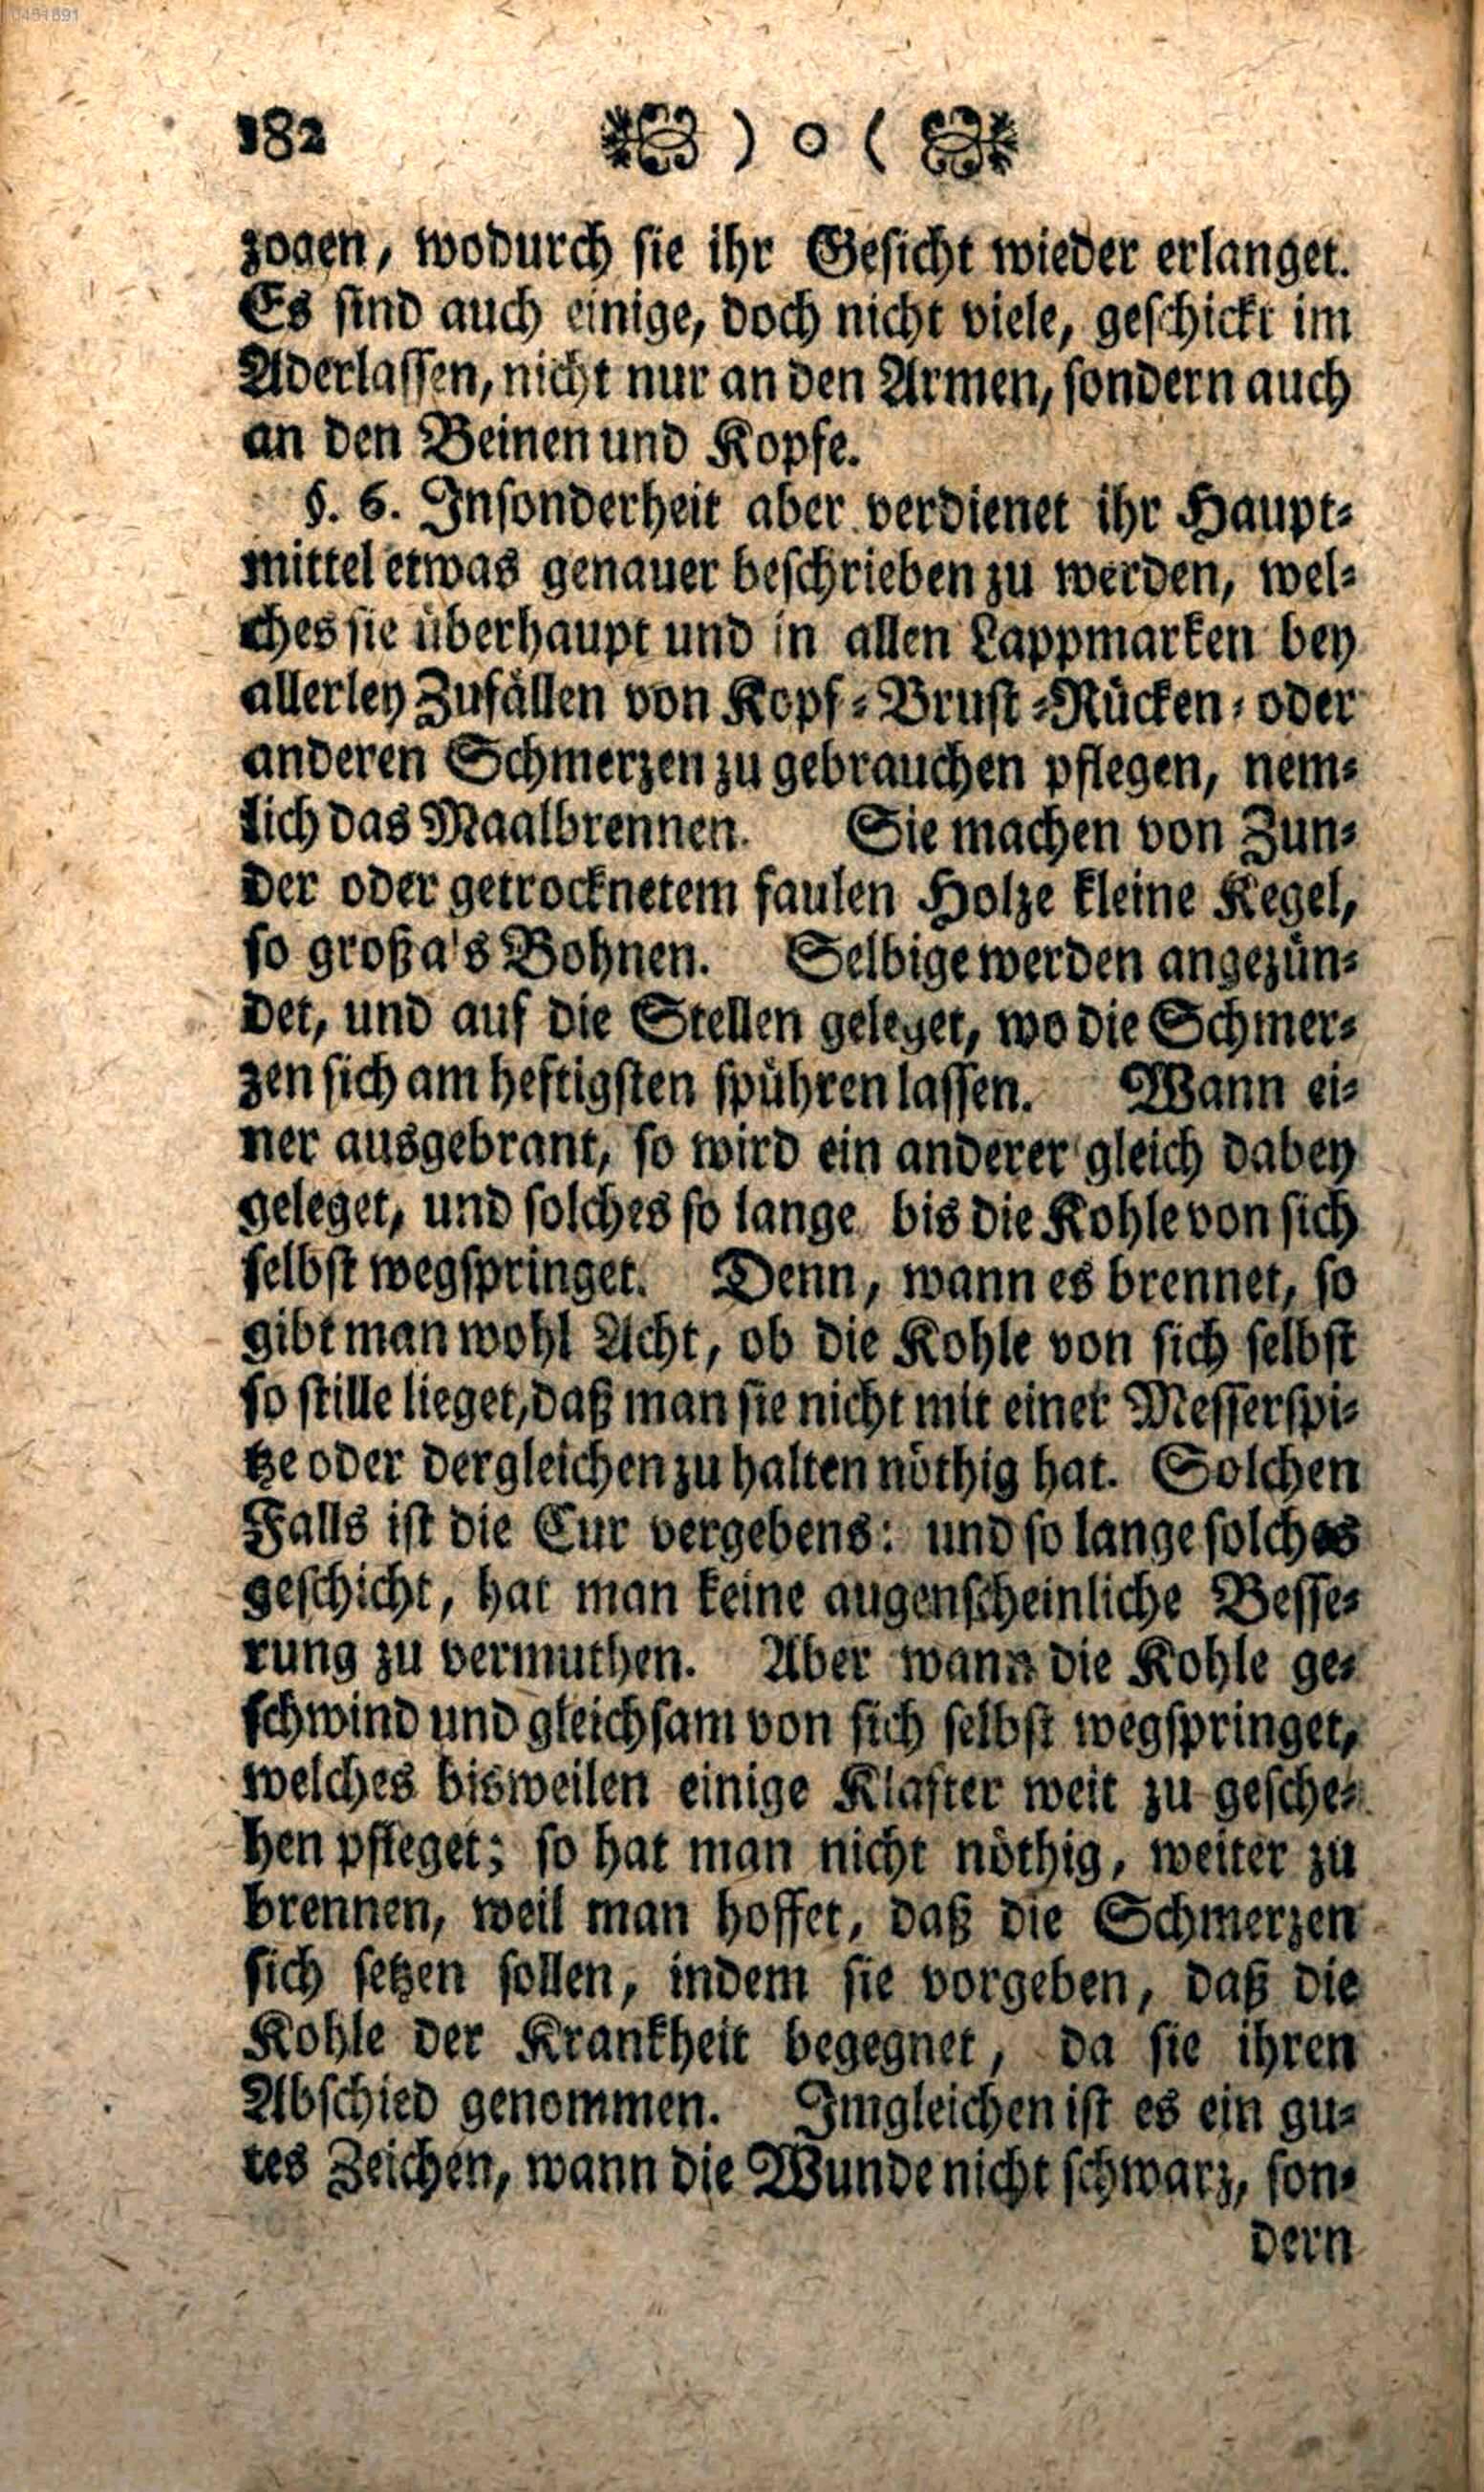 182 ) o (
zogen, wodurch sie ihr Gesicht wieder erlanget.
Es sind auch einige, doch nicht viele, geschickt im
Aderlassen, nicht nur an den Armen, sondern auch
an den Beinen und Kopfe.
§. 6. Insonderheit aber verdienet ihr Haupt-
mittel etwas genauer beschrieben zu werden, wel-
ches sie überhaupt und in allen Lappmarken bey
allerley Zufällen von Kopf- Brust- Rücken- oder
anderen Schmerzen zu gebrauchen pflegen, nem-
lich das Maalbrennen. Sie machen von Zun-
der oder getrocknetem faulen Holze kleine Kegel,
so groß a's Bohnen. Selbige werden angezün-
det, und auf die Stellen geleget, wo die Schmer-
zen sich am heftigsten spühren lassen. Wann ei-
ner ausgebrant, so wird ein anderer gleich dabey
geleget, und solches so lange bis die Kohle von sich
selbst wegspringet. Denn, wann es brennet, so
gibt man wohl Acht, ob die Kohle von sich selbst
so stille lieget, daß man sie nicht mit einer Messerspi-
tze oder dergleichen zu halten nöthig hat. Solchen
Falls ist die Cur vergebens: und so lange solches
geschicht, hat man keine augenscheinliche Besse-
rung zu vermuthen. Aber wann die Kohle ge-
schwind und gleichsam von sich selbst wegspringet,
welches bisweilen einige Klafter weit zu gesche-
hen pfleget; so hat man nicht nöthig, weiter zu
brennen, weil man hoffet, daß die Schmerzen
sich setzen sollen, indem sie vorgeben, daß die
Kohle der Krankheit begegnet, da sie ihren
Abschied genommen. Imgleichen ist es ein gu-
tes Zeichen, wann die Wunde nicht schwarz, son-
dern